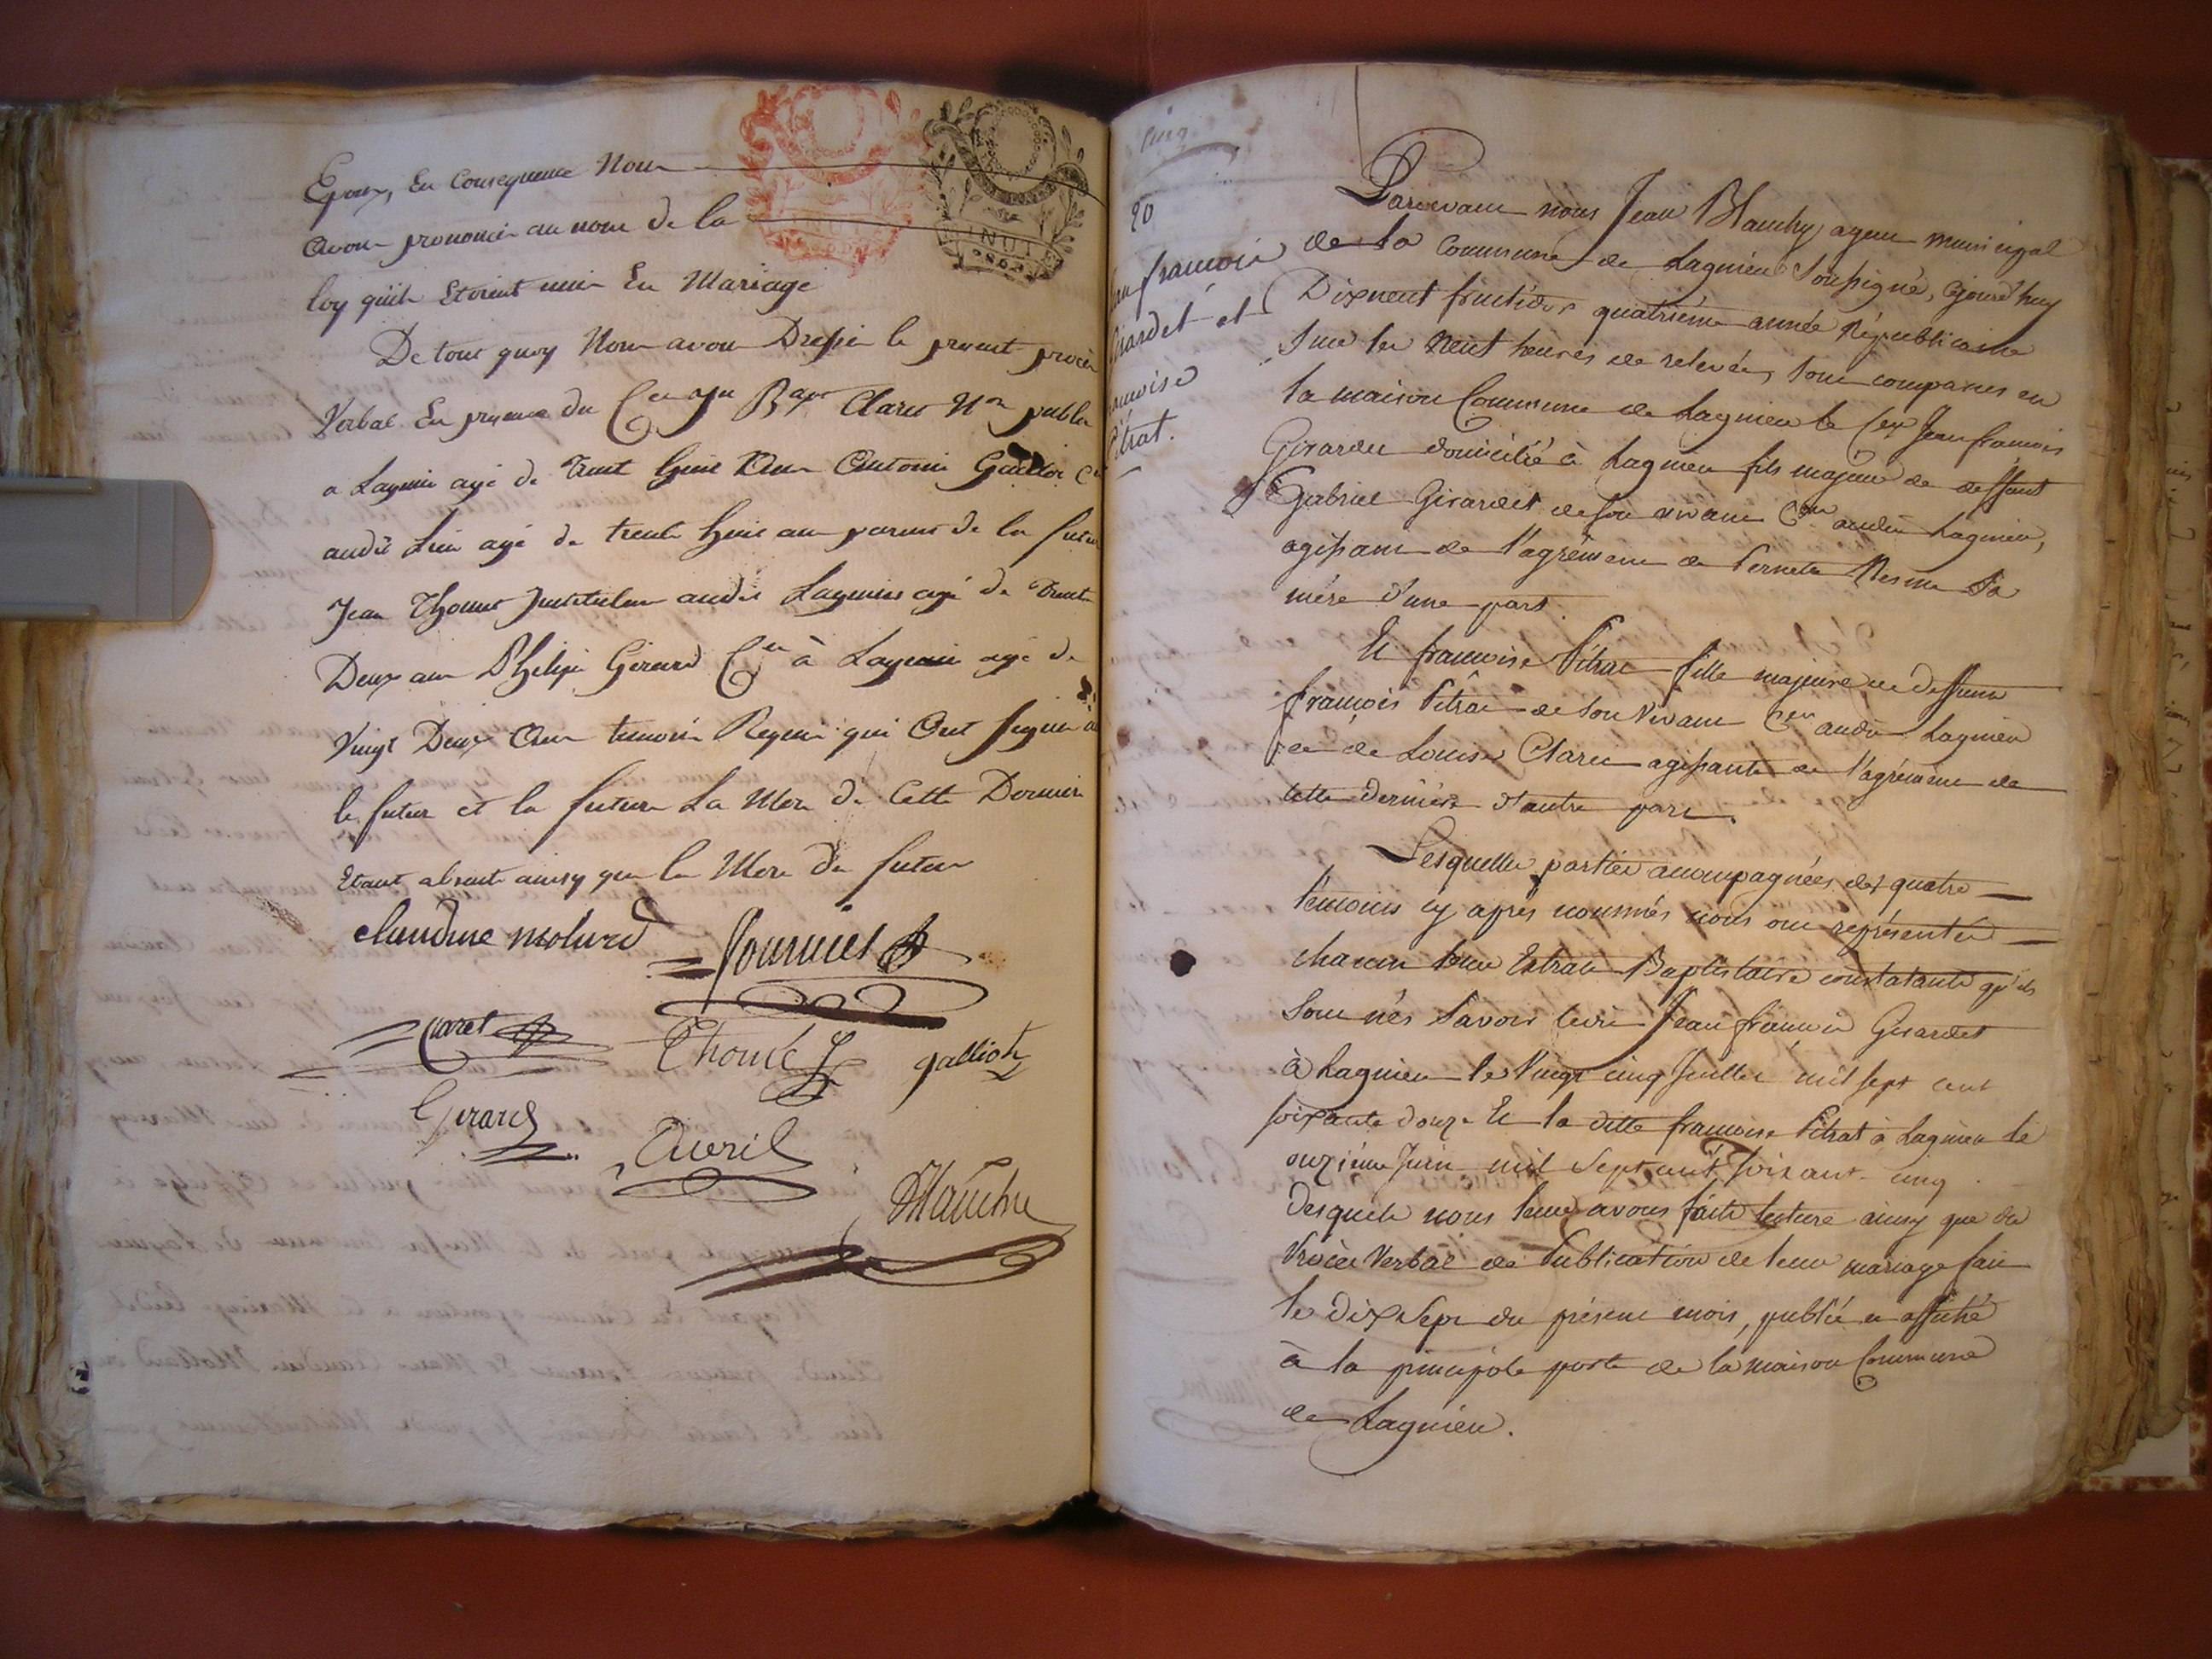 Epoux, En Consequence Nous
avons prononcé au nom de la
loy qu'ils Etoient unis En Mariage
De tout quoy Nous avons Dressé le present procès
Verbal En presence du Cen Jn Bapt Claret Nre public
a Lagnieu agé de Trent huit Ans Antoine Galliot Cen
audit Lieu agé de trente huit ans parens de la future
Jean Thomé Instituteur audit Lagnieu agé de Trente
Deux ans Philipe Girard Cen à Lagnieu agé de
Vingt Deux Ans temoin Requis qui Ont signé
le futur et la future La Mere de Cette Derniere
Etant absente ainsy que la Mere du futur
claudine molurd fournier
Claret Thomé galliot
Girard
Avril
Blanchy
cinq
20
Jean francois
Girardet et
francoise
Pitrat.
Pardevant nous Jean Blanchy agent municipal
de la Commune de Lagnieu Soussigné, Cejourd'huy
Dixneuf fructidor quatrième année Républicaine
Sur les neuf heures de relevée, sont comparus en
la maison Commune de Lagnieu le Cen Jean francois
Girardet domicilié à Lagnieu fils majeur de deffunt
Gabriel Girardet de son vivant Cen audit Lagnieu,
agissant de l'agrément de Pernette Mesme Sa
mére d'une part.
Et francoise Pitrat fille majeure de deffunt
françois Pitrat de son Vivant Cen audit Lagnieu
et de Louise Claret agissante de l'agrément de
cette derniére d'autre part.
Lesquelles parties acompagnées des quatre
temoins cy aprés nommés nous ont représenté
chacun leur Extrait Baptistaire constatants qu'ils
sont nés Savoir ledit Jean françois Girardet
à Lagnieu le Vingt cinq Juillet mil sept cent
soixante douze Et la ditte francoise Pitrat à Lagnieu le
onzième Juin mil sept cent soixante cinq
Desquels nous leur avons faite lecture ainsy que du
Procès Verbal de Publication de leur mariage fait
le dix Sept du présent mois, publié et affiché
à la principale porte de la maison Commune
de Lagnieu.